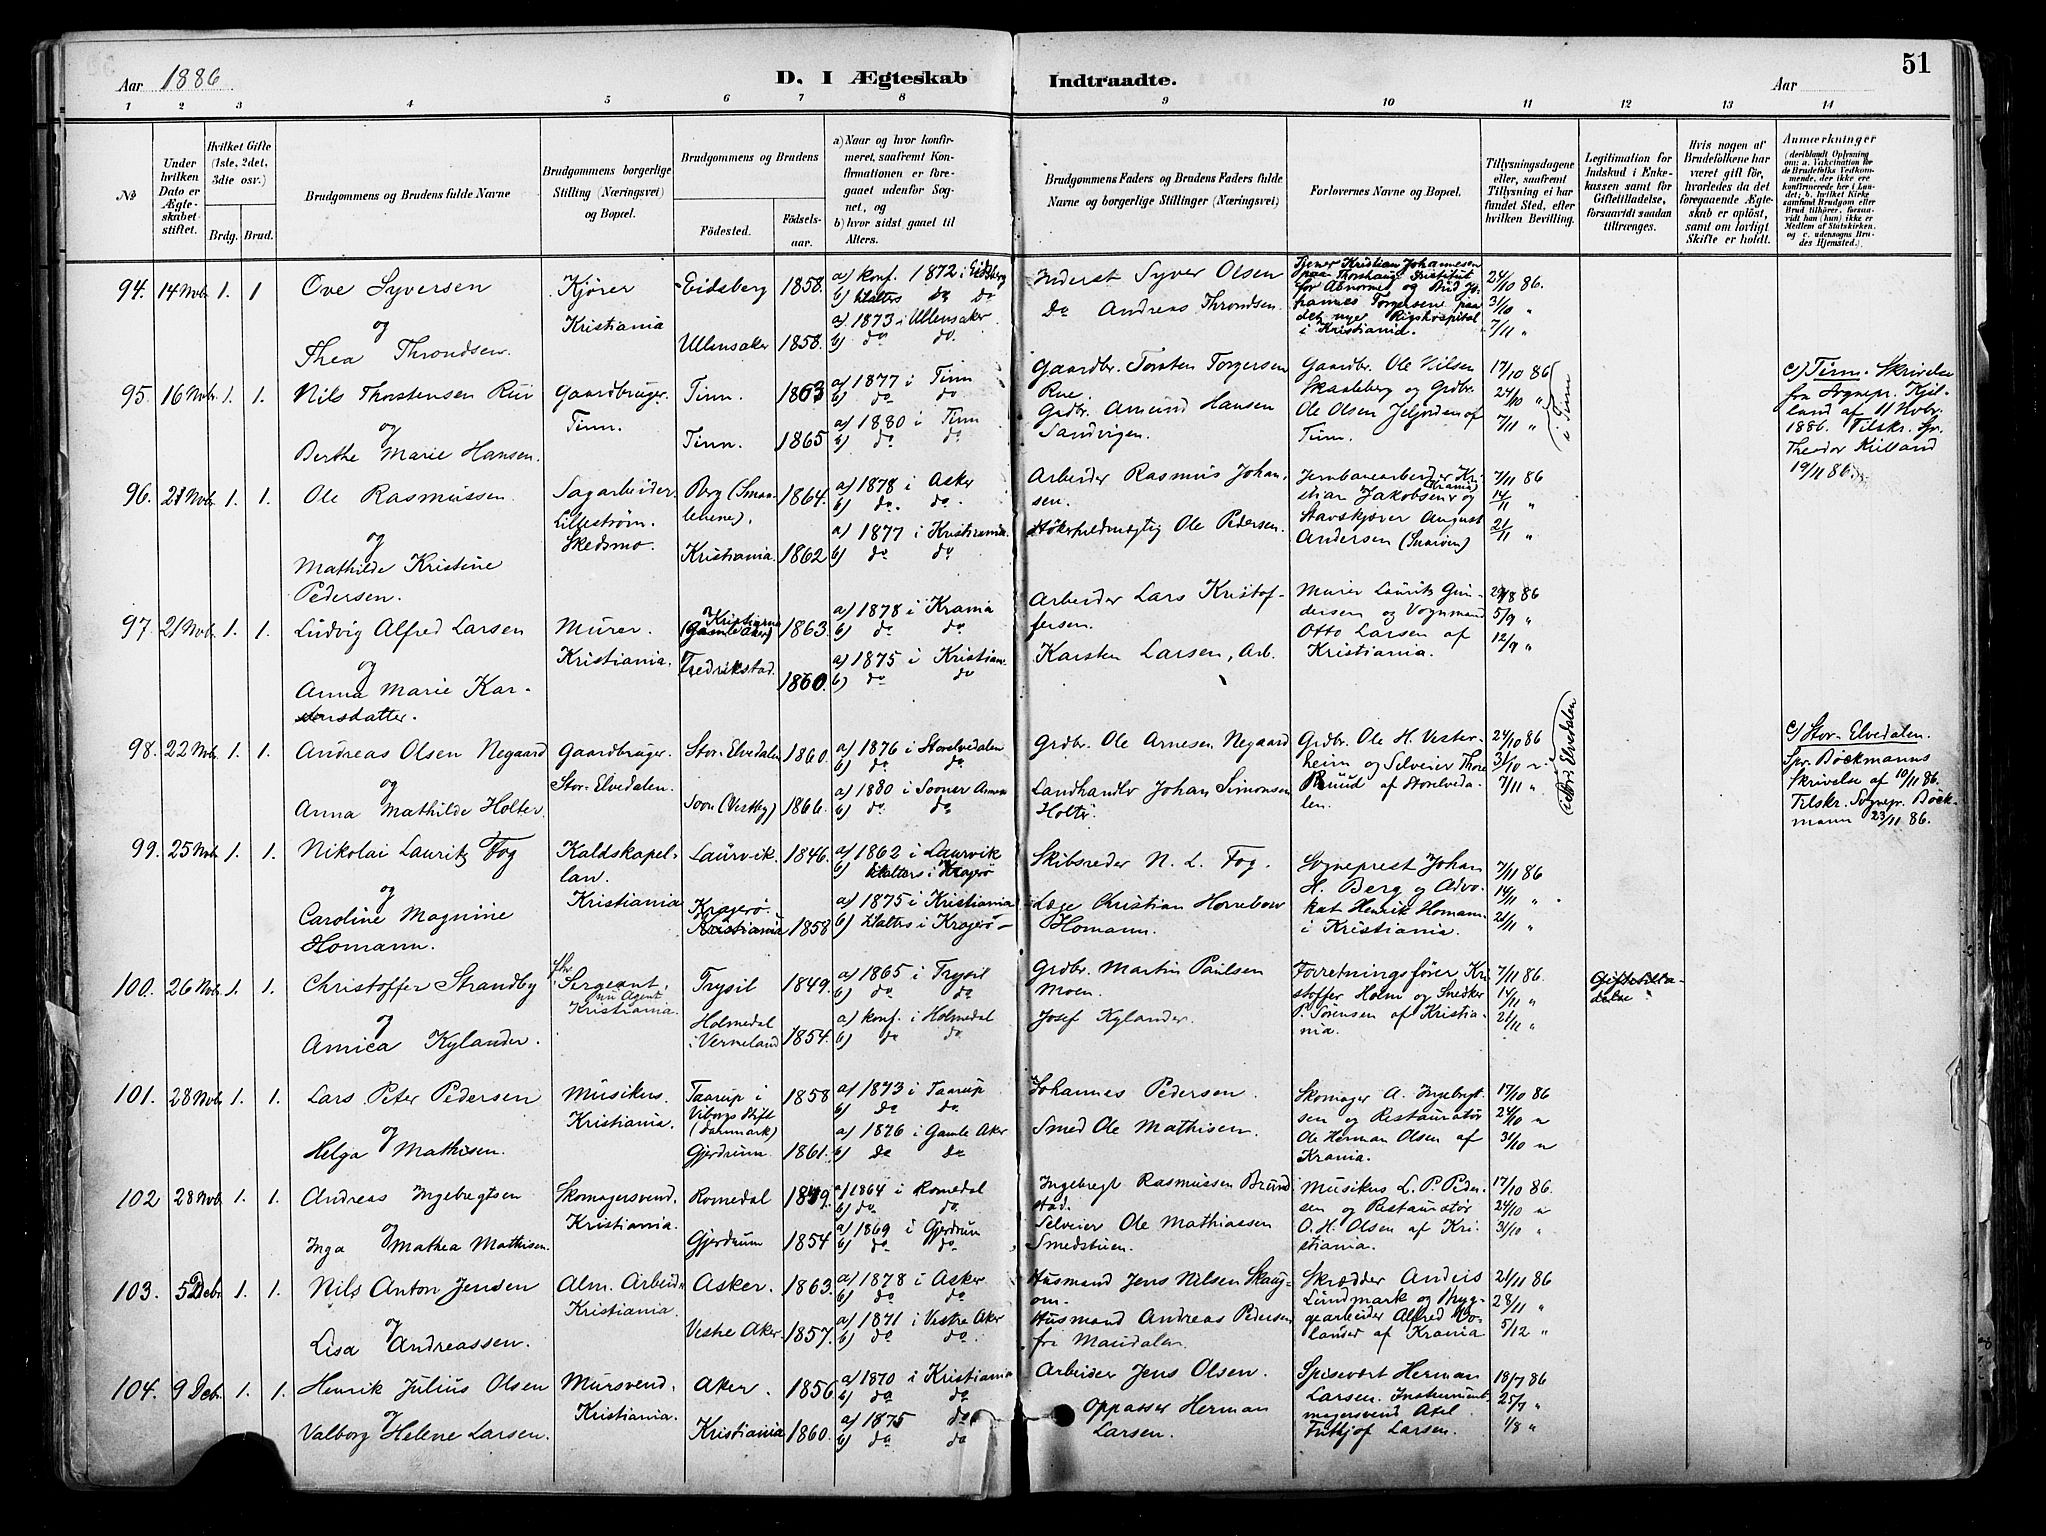 Aar 1886
D. I Ægteskab Indtraadte.
Aar
51
1 2 3 4 5 6 7 8 9 10 11 12 13 14
No
Under hvilken Dato er Ægteskabet stiftet.
Hvilket Gifte (1ste, 2det, 3die osv.)
Brdg. Brud.
Brudgommens og Brudens fulde Navne
Brudgommens borgerlige Stilling (Næringsvei) og Bopæl.
Brudgommens og Brudens
Fødested. Fødselsaar.
a) Naar og hvor konfirmeret, saafremt Konfirmationen er foregaaet udenfor Sognet, og
b) hvor sidst gaaet til Alters.
Brudgommens Faders og Brudens Faders fulde Navne og borgerlige Stillinger (Næringsvei)
Forlovernes Navne og Bopæl.
Tillysningsdagene eller, saafremt Tillysning ei har fundet Sted, efter hvilken Bevilling.
Legitimation for Indskud i Enkekassen samt for Giftetilladelse, forsaavidt saadan tiltrænges.
Hvis nogen af Brudefolkene har været gift før, hvorledes da det foregaaende Ægteskab er opløst, samt om lovligt Skifte er holdt.
Anmærkninger
(deriblandt Oplysning om: a. Vakcination for de Brudefolks Vedkommende, der ikke ere konfirmerede her i Landet; b. hvilket Kirkesamfund Brudgom eller Brud tilhører, forsaavidt han (hun) ikke er Medlem af Statskirken, og c. udensogns Brudes Hjemsted.)
94. 14 Novbr. 1. 1 Ove Syversen Kjører Eidsberg 1858. a) konf. 1872 i Eidsberg Inderst Syver Olsen Tjener Kristian Johannesen 24/10 86.
og Kristiania b) do do paa Thorshaug Institut for Abnorme og 31/10 "
Thea Throndsen. Ullensaker 1858. a) 1873 i Ullensaker Do Andreas Throndsen. hannes Torgersen paa det nye Rigshospital i Kristiania. 7/11 "
b) do do.
95. 16 Novbr. 1. 1. Nils Thorstensen Rui Gaardbruger. Tinn. 1863 a) 1877 i Tinn Gaardbr. Torsten Torgersen Rue. Gaardbr. Ole Nilsen 17/10 86
og Tinn. b) do do Skaaleberg og Grdbr. 24/10 "
Berthe Marie Hansen. Tinn. 1865 a) 1880 i Tinn Grdbr. Amund Hansen Sandvigen. Ole Olsen af Tinn. 7/11 "
b) do do (i Tinn)
c) Tinn. Skrivelse
fra Sognepr. Kjelland af 11 Novbr.
1886. Tilskr. Spr.
Theodor Kielland
19/11 86.
96. 21 Novbr. 1. 1. Ole Rasmussen. Sagarbeider. Berg (Smaalenene). 1864. a) 1878 i Asker Arbeider Rasmus Johansen. Jernbanearbeider Kristian Jakobsen (Krania) og 7/11 86
og Lillestrøm. b) do. do. 14/11 "
Mathilde Kristine Skedsmo. Kristiania. 1862 a) 1877 i Kristiania. Ole Pedersen. August Andersen 21/11 "
Pedersen. b) do do
97. 21 Novbr. 1. 1. Ludvig Alfred Larsen Murer. Kristiania (Gamle Aker) 1863. a) 1878 i Krania Arbeider Lars Kristoffersen. Murer Laurits Gundersen og Vognmand 29/8 86
og Kristiania. b) do do 5/9 "
Anna Marie Karstensdatter. Fredrikstad. 1860. a) 1875 i Kristian. Karsten Larsen, Arb. Otto Larsen af Kristiania. 12/9 "
b) do do
98. 22 Novbr. 1. 1. Andreas Olsen Negaard Gaardbruger. Stor-Elvedalen 1860. a) 1876 i Storelvedalen Grdbr. Ole Arnesen Negaard Grdbr. Ole H. Vesterheim og Selveier Thore 24/10 86
og Stor-Elvedalen. b) do do 31/10 "
Anna Mathilde Holter. Soon (Vestby) 1866. a) 1880 i Landhandlr Johan Simonsen Holtr. Ruud af Storelvedalen. 7/11 "
b) do do (i Stor Elvedalen)
c) Stor-Elvedalen.
Spr. Bøckmanns
Skrivelse af 10/11 86.
Tilskr. Sognepr. Bøckmann 23/11 86.
99. 25 Novbr. 1. 1. Nikolai Lauritz Fog Kaldskapellan. Laurvik. 1846. a) 1862 i Laurvik Skibsreder N. L. Fog. Sogneprest Johan 7/11 86
og Kristiania b) t. Alters i Kragerø H. Berg og Advokat Henrik Homann 14/11 "
Caroline Magnine Homann. Kragerø. Kristiania 1858 a) 1875 i Kristiania Læge Christian Horrebow Homann. i Kristiania. 21/11 "
b) t. Alters i Kragerø
100. 26 Novbr. 1. 1. Christoffer Strandby fhv. Sergeant, nu Agent Trysil 1849. a) 1865 i Trysil Grdbr. Martin Paulsen Moen. Forretningsfører Kristoffer Holm og Snedker 7/11 86.
og Kristiania. b) do do 14/11 "
Amica Kylander. Holmedal i Vermeland 1854. a) konf. i Holmedal Josef Kylander. P. Sørensen af Kristiania. 21/11 "
b) do do
Giftetilladelse
101. 28 Novbr. 1. 1. Lars Peter Pedersen Musikus. Taarup i Viborg Stift (Danmark) 1858 a) 1873 i Taarup Johannes Pedersen. Skomager A. Ingebregtsen og Restauratør 17/10 86
og Kristiania. b) do do. 24/10 "
Helga Mathisen. Gjerdrum 1861. a) 1876 i Gamle Aker Smed Ole Mathisen. Ole Herman Olsen af Krania. 31/10 "
b) do do
102 28 Novbr. 1. 1. Andreas Ingebregtsen Skomagersvend. Romedal 1849. a) 1864 i Romedal Ingebregt Rasmussen Brundstad. Musikus L. P. Pedersen og Restauratør 17/10 86.
og Kristiania. b) do do. 24/10 "
Inga Mathea Mathisen. Gjerdrum 1854 a) 1869 i Gjerdrum Selveier Ole Mathiassen Smedstuen. O. H. Olsen af Kristiania. 31/10 "
b) do do
103. 5 Debr. 1. 1. Nils Anton Jensen Alm. Arbeidr Asker. 1863 a) 1878 i Asker Husmand Jens Nilsen Skaugom. Skrædder Anders 21/11 86
og Kristiania. b) do do. Lundmark og Bryggearbeider Alfred Bolander af Krania 28/11 "
Lisa Andreassen. Vestre Aker 1857. a) 1871 i Vestre Aker Husmand Andreas Pedersen fra Maridalen. 5/12 "
b) do do
104. 9 Debr. 1. 1. Henrik Julius Olsen Mursvend. Aker. 1856 a) 1870 i Kristiania Arbeider Jens Olsen. Spisevært Herman 18/7 86
og Kristiania. b) do do Larsen. Instrumentmagersvend Axel 25/7 "
Valborg Helene Larsen. Kristiania 1860. a) 1875 do Oppasser Herman Larsen. Fritjof Larsen. 1/8 "
b) do do